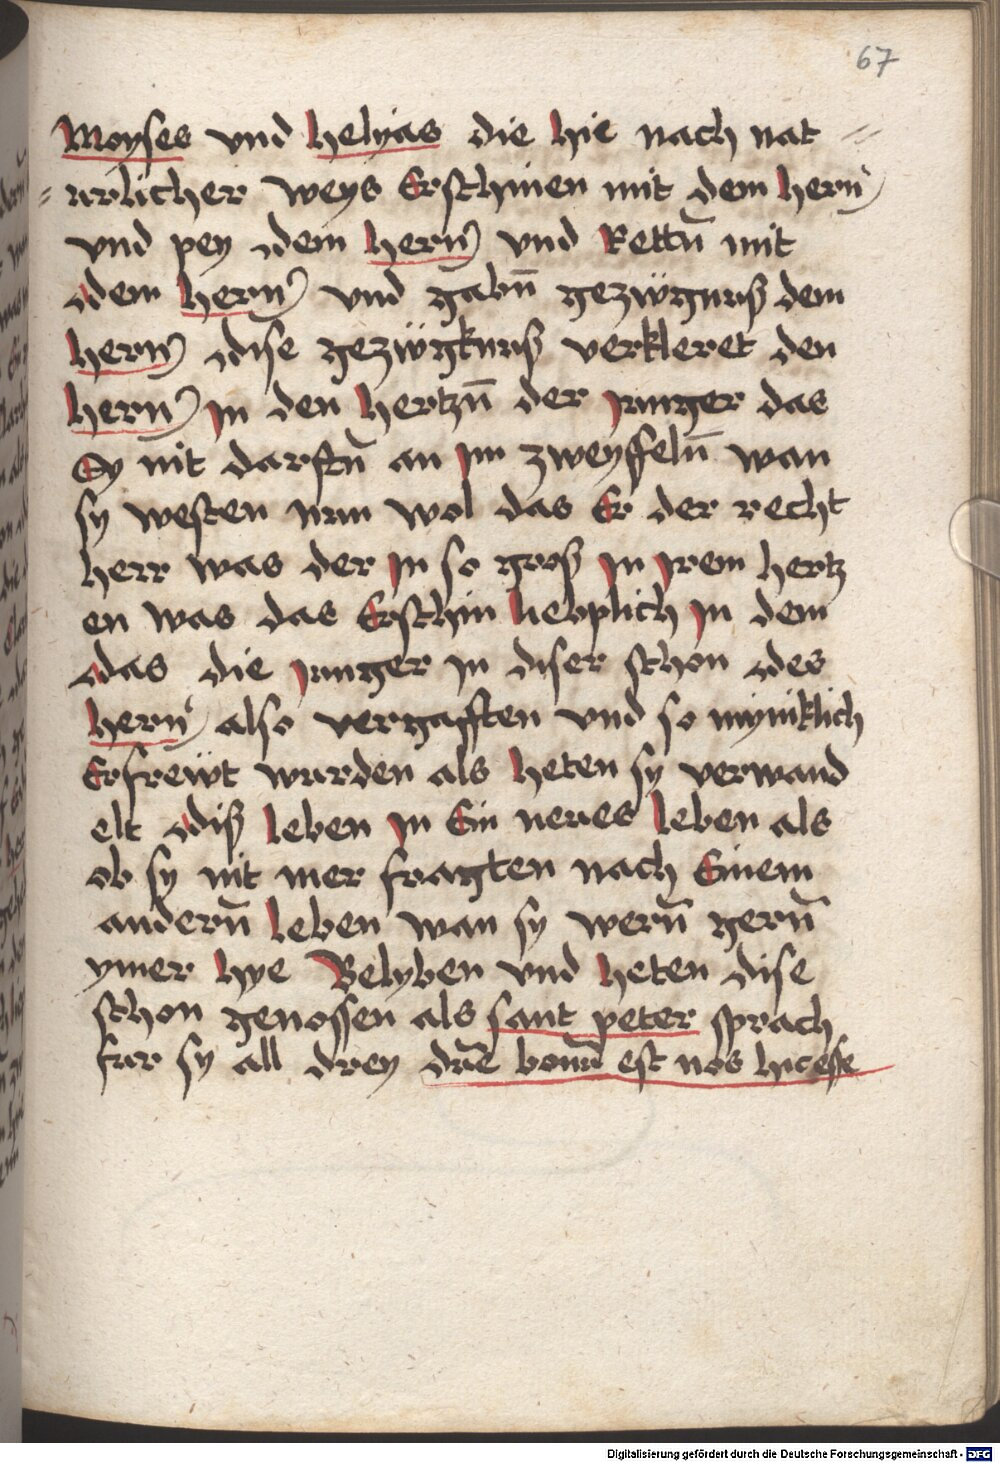 67
Moyses vnd helyas die hie nach nat =
= urlicher weys Erschinen mit dem hern
vnd pey dem hern vnd Rettn̄ mit
dem hern vnd gabn̄ gezwgnuß dem
hern dise gezẅgknuß verkleret den
hern jn den hertzn̄ der junger das
Sy nit darftn̄ an jm zweyffeln̄ wan
sy westen nun wol das Er der recht
herr was der jn so groß jn jrem hertz
en was das Erschin lieblich jn dem
das die junger jn diser schon des
hern also vergafften vnd so myniklich
Erfrewt wurden als heten sy verwand
elt diß leben jn Ein neues leben als
ob sy nit mer fragten nach Einem
andern̄ leben wan sy wern̄ gern̄
ymer hye Belyben vnd heten dise
schon genossen als sant peter sprach
fur sy all drey dn̄e bonū est nos hic esse
Digitalisierung gefördert durch die Deutsche Forschungsgemeinschaft - DFG